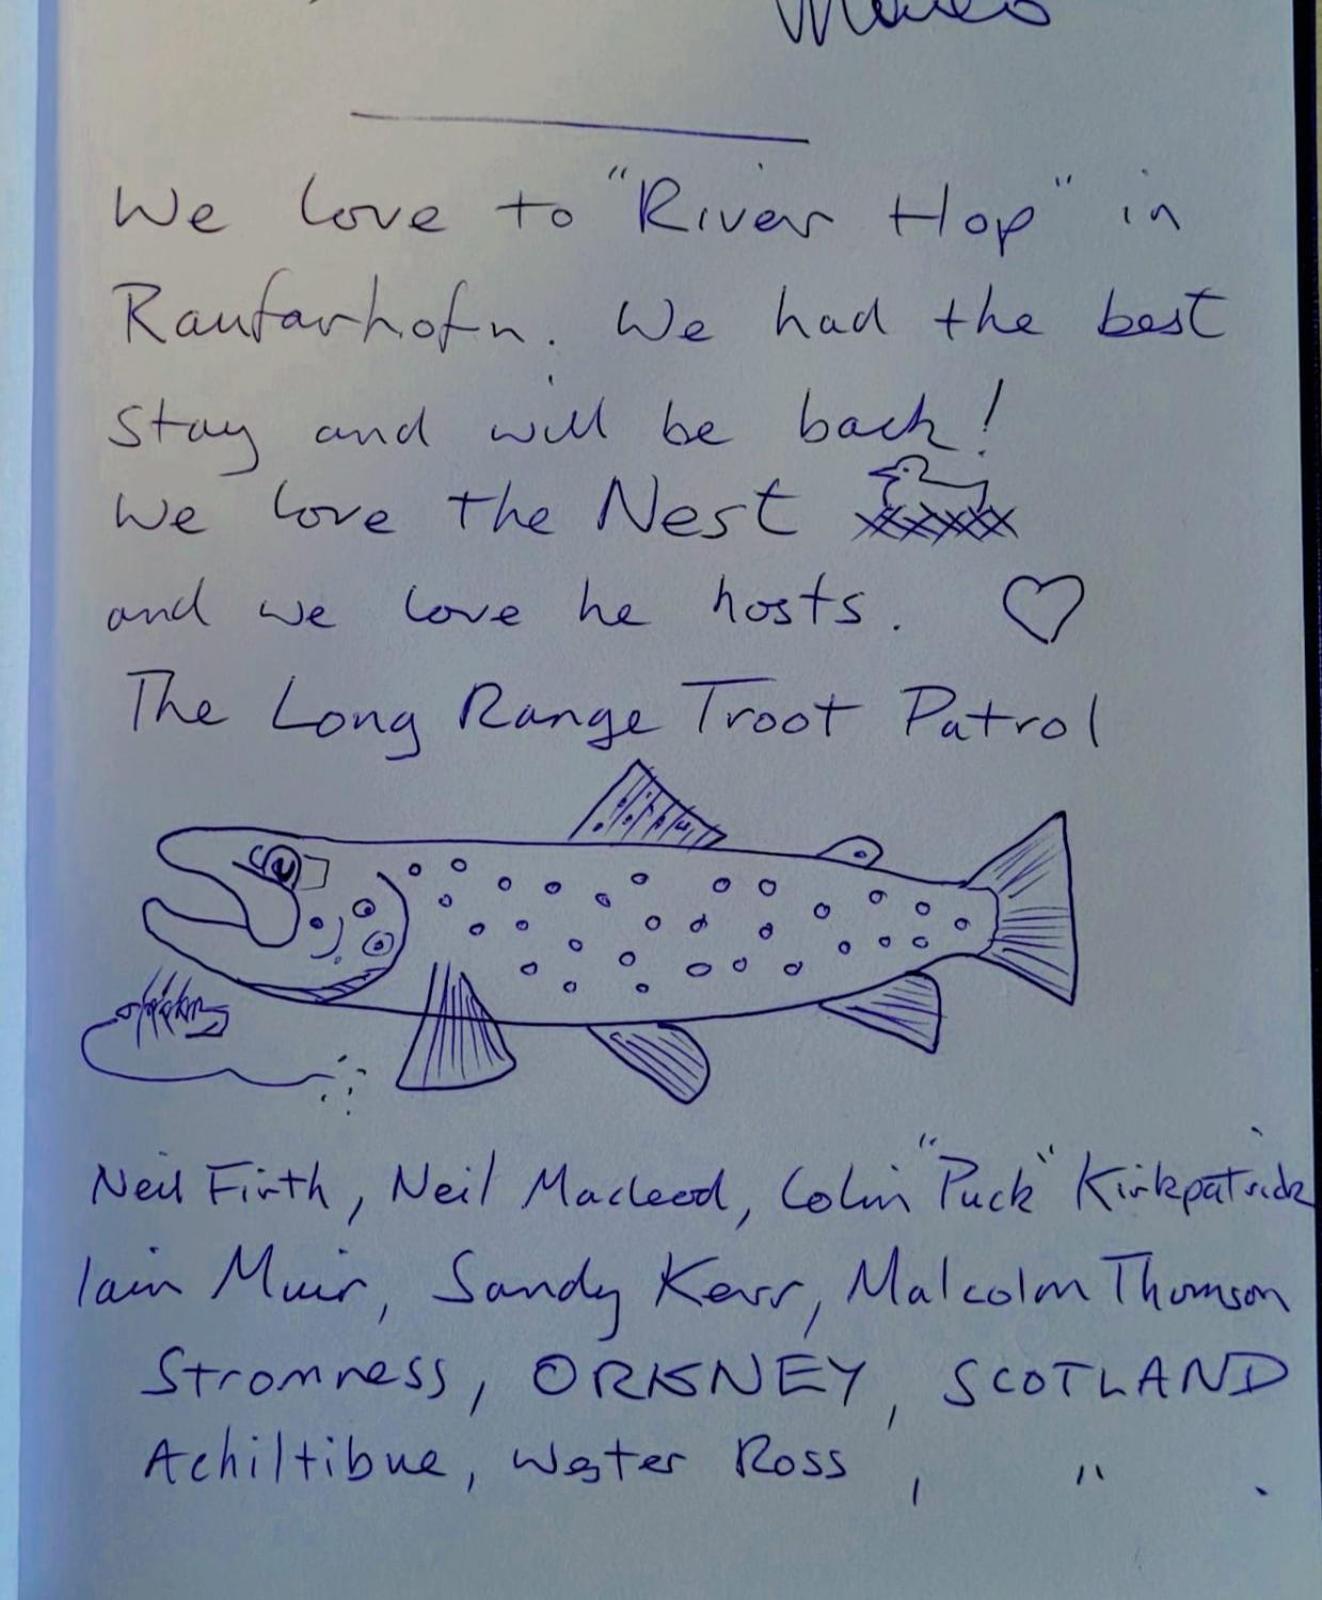 We love to "River Hop" in
Raufarhofn. We had the best
stay and will be back!
We love the Nest
and we love he hosts.
The Long Range Troot Patrol
Neil Firth, Neil Macleod, Colin "Puck" Kirkpatrick
Iain Muir, Sandy Kerr, Malcolm Thomson
Stromness, ORKNEY, SCOTLAND
Achiltibue, Wester Ross, " .